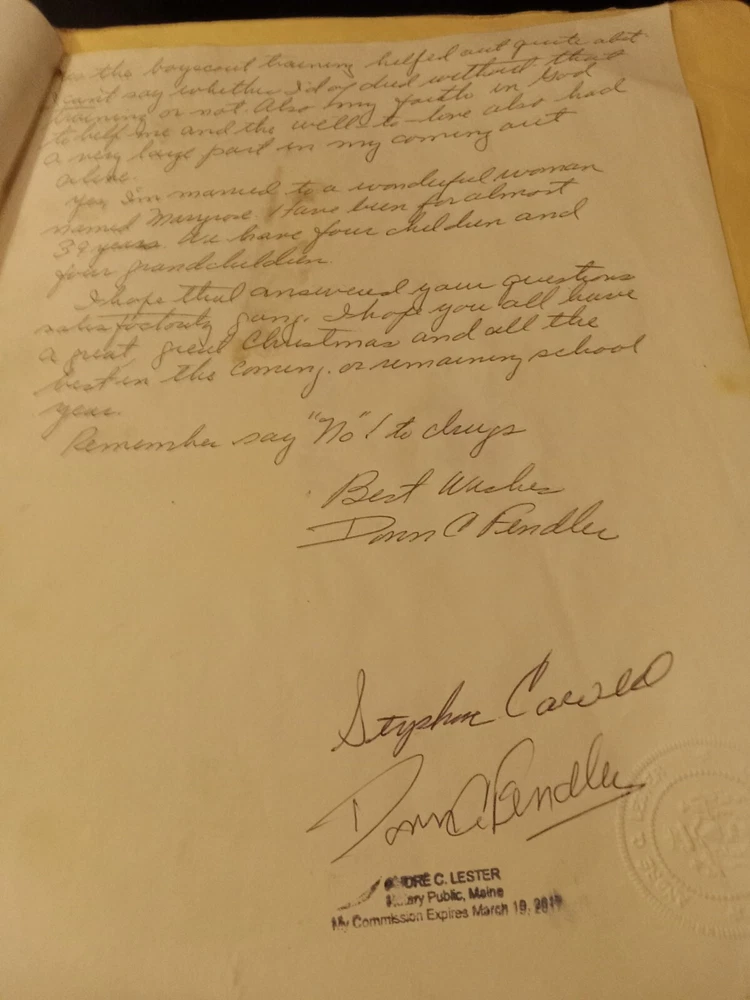 the boyscout training helped out quite abit
I can't say whether I'd of died without that
training or not. Also my faith in God
to help me and the well-to-love also had
a very large part in my coming out
alive.
Yes, I'm married to a wonderful woman
named Maryrose. Have been for almost
39 years. We have four children and
four grandchildren.
I hope that answered your questions
satisfactorily gang. I hope you all have
a great, great Christmas and all the
best in the coming, or remaining school
year.
Remember say "No"! to drugs
Best Wishes
Donn C Fendler
Stephen
Donn C. Fendler
ANDRÉ C. LESTER
Notary Public, Maine
My Commission Expires March 19,
ANDRE C. LESTER